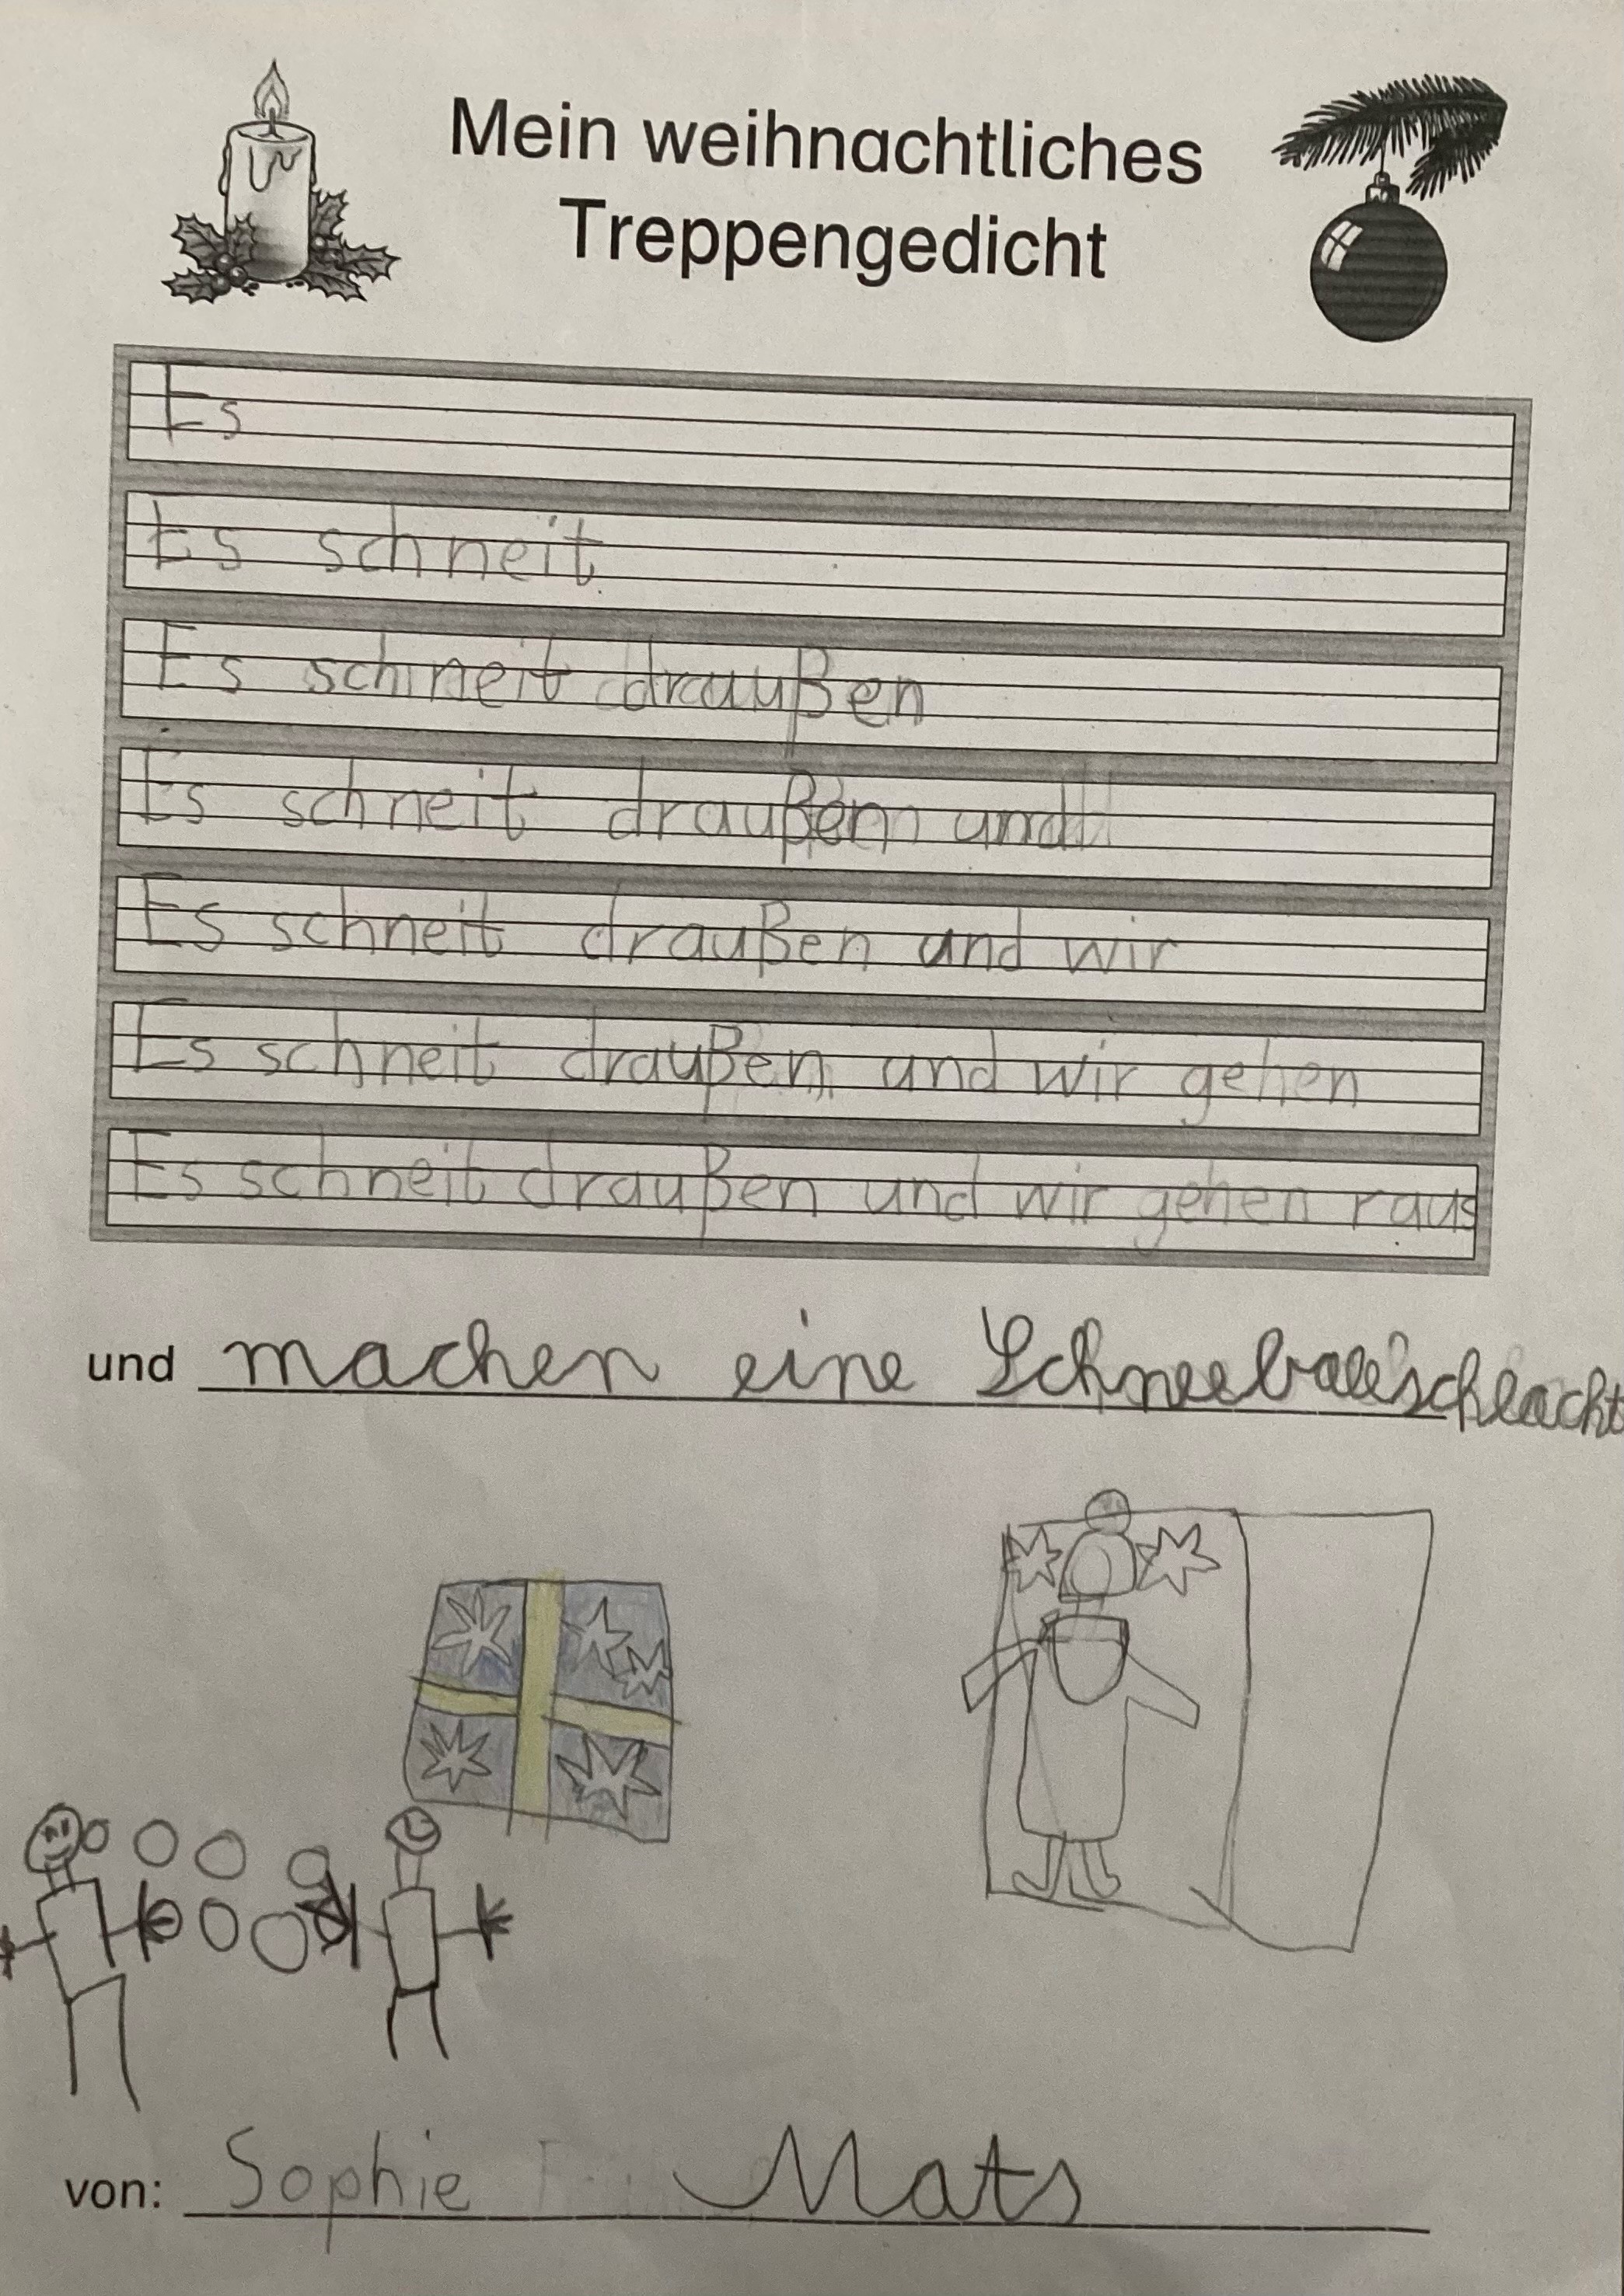 Mein weihnachtliches
Treppengedicht
Es
Es schneit
Es schneit draußen
Es schneit draußen und
Es schneit draußen und wir
Es schneit draußen und wir gehen
Es schneit draußen und wir gehen raus
und machen eine Schneeballschlacht
von: Sophie Mats